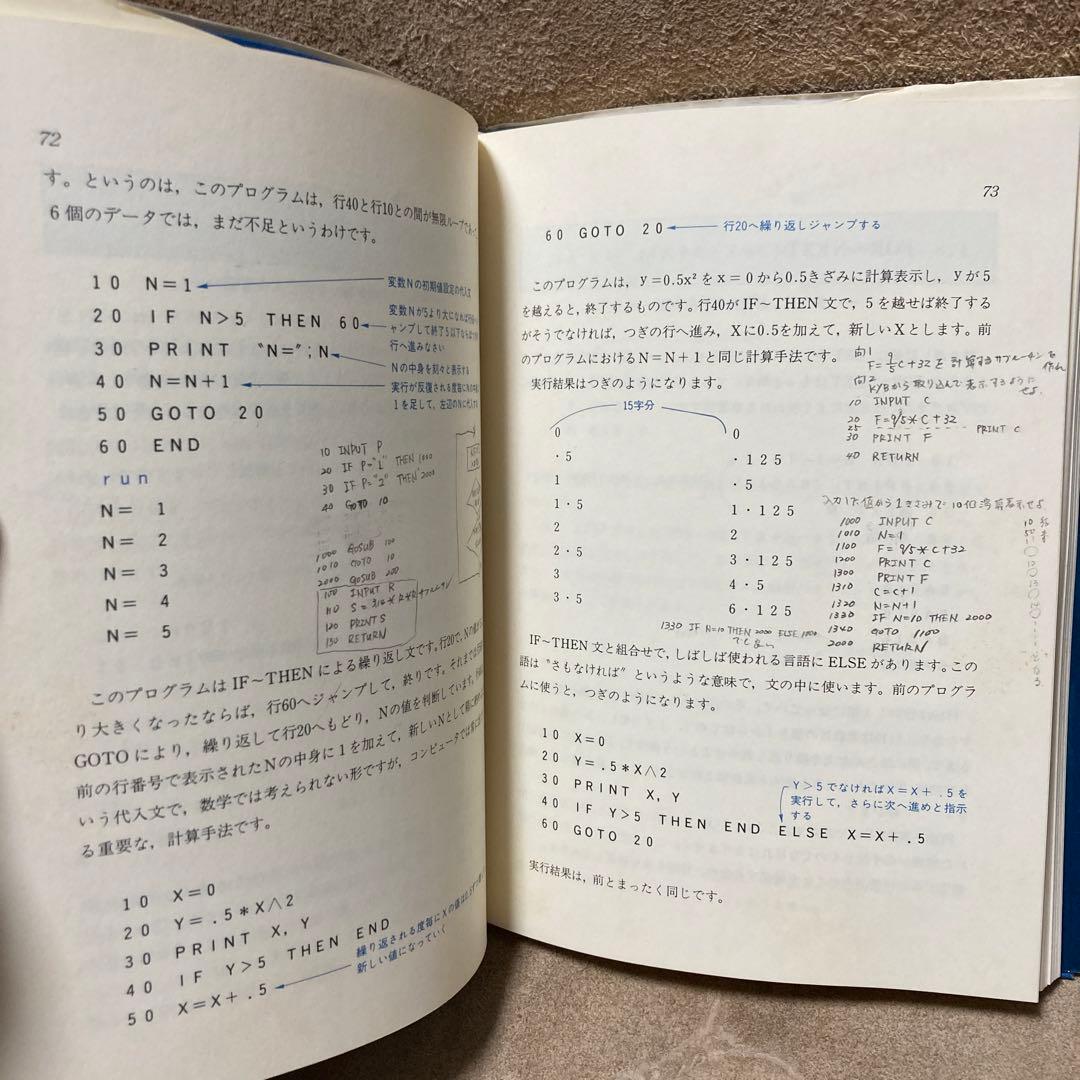 72
す。というのは，このプログラムは，行40と行10との間が無限ループであっ
6個のデータでは，まだ不足というわけです。
10 N=1
変数Nの初期値設定の代入文
20 IF N>5 THEN 60
変数Nが5より大になれば行
ャンプして終了5以下ならば
行へ進みなさい
30 PRINT "N=";N
Nの中身を刻々と表示する
40 N=N+1
実行が反復される度毎にNの中
1を足して，左辺のNに代入す
50 GOTO 20
60 END
run
N= 1
N= 2
N= 3
N= 4
N= 5
10 INPUT P
20 IF P="1" THEN 1000
30 IF P="2" THEN 2000
40 GOTO 10
1000 GOSUB 100
1010 GOTO 10
2000 GOSUB 200
100 INPUT R
110 S=3.14*R*R サブルーチン
120 PRINT S
130 RETURN
このプログラムは IF～THEN による繰り返し文です。行20で，Nの値が
り大きくなったならば，行60へジャンプして，終りです。それまでは
GOTO により，繰り返して行20へもどり，Nの値を判断しています。
前の行番号で表示されたNの中身に1を加えて，新しいNとして
いう代入文で，数学では考えられない形ですが，コンピュータでは
る重要な，計算手法です。
10 X=0
20 Y=.5*X∧2
30 PRINT X, Y
40 IF Y>5 THEN END
50 X=X+.5
繰り返される度毎にXの値は0.5ずつ
新しい値になっていく
73
60 GOTO 20
行20へ繰り返しジャンプする
このプログラムは，y＝0.5x²をx＝0から0.5きざみに計算表示し，yが5
を越えると，終了するものです。行40が IF～THEN 文で，5を越せば終了する
がそうでなければ，つぎの行へ進み，Xに0.5を加えて，新しいXとします。前
のプログラムにおけるN＝N＋1と同じ計算手法です。
実行結果はつぎのようになります。
向1
F=9/5C+32を計算するサブルーチンを作れ
向2
KYBから取り込んで表示するように
せよ
10 INPUT C
20 F=9/5*C+32
25 PRINT C
30 PRINT F
40 RETURN
15字分
0 0
・5 ・125
1 ・5
1・5 1・125
2 2
2・5 3・125
3 4・5
3・5 6・125
入力した値から1きざみで10個計算表示せよ
1000 INPUT C
1010 N=1
1100 F=9/5*C+32
1200 PRINT C
1300 PRINT F
1310 C=C+1
1320 N=N+1
1330 IF N=10 THEN 2000
1340 GOTO 1100
2000 RETURN
1330 IF N=10 THEN 2000 ELSE 1100
でもよい
IF～THEN 文と組合せで，しばしば使われる言語に ELSE があります。この
語は"さもなければ"というような意味で，文の中に使います。前のプログラ
ムに使うと，つぎのようになります。
10 X=0
20 Y=.5*X∧2
30 PRINT X, Y
40 IF Y>5 THEN END ELSE X=X+.5
60 GOTO 20
Y>5でなければX=X+.5を
実行して，さらに次へ進めと指示
する
実行結果は，前とまったく同じです。